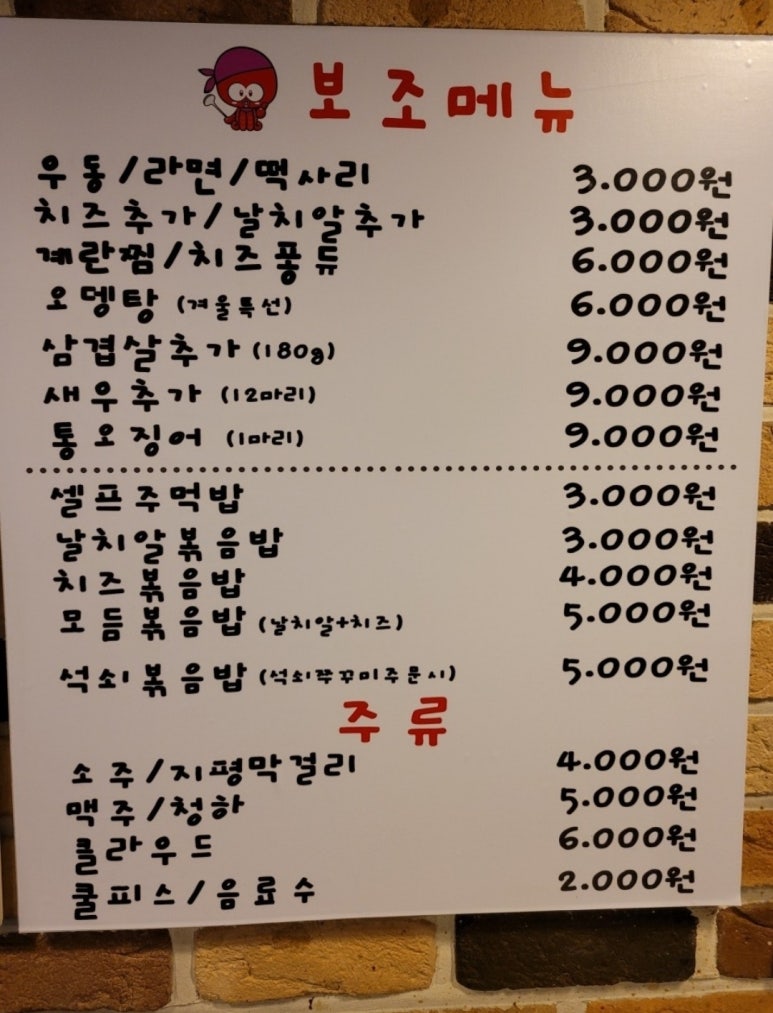 보조메뉴
우동/라면/떡사리 3.000원
치즈추가/날치알추가 3.000원
계란찜/치즈퐁듀 6.000원
오뎅탕 (겨울특선) 6.000원
삼겹살추가 (180g) 9.000원
새우추가 (12마리) 9.000원
통오징어 (1마리) 9.000원
셀프주먹밥 3.000원
날치알볶음밥 3.000원
치즈볶음밥 4.000원
모듬볶음밥 (날치알+치즈) 5.000원
석쇠볶음밥 (석쇠쭈꾸미주문시) 5.000원
주류
소주/지평막걸리 4.000원
맥주/청하 5.000원
클라우드 6.000원
쿨피스/음료수 2.000원